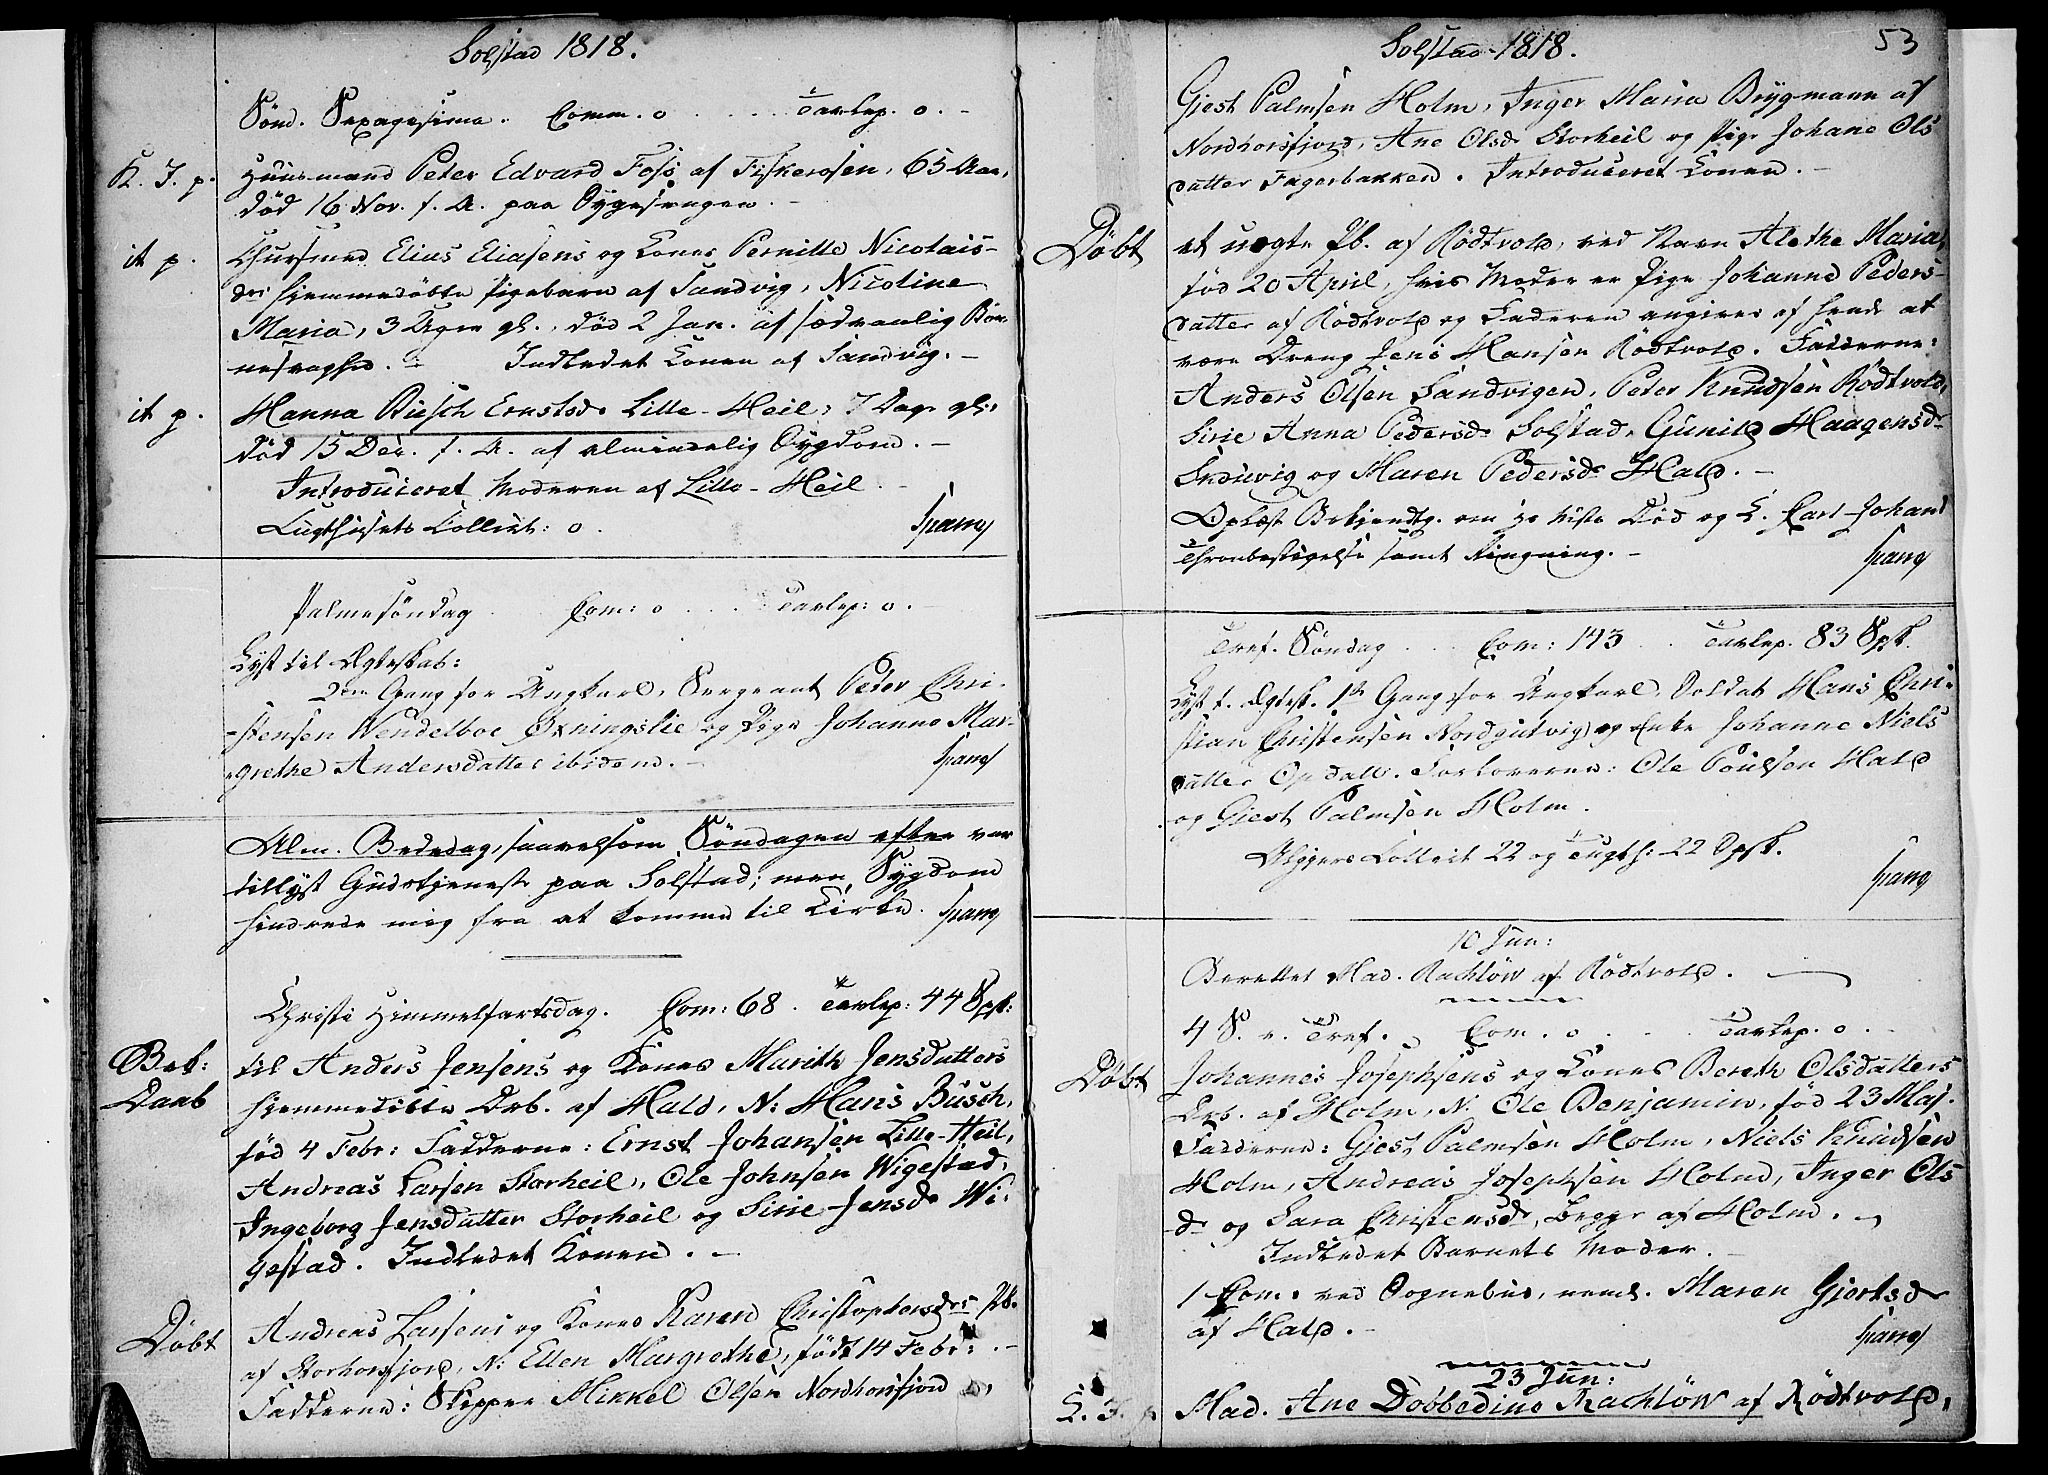 Solstad 1818.
Sönd. Sexagesima. Comm. 0 Tavlep. 0.
K. J. p. Huusmand Peter Edvard Foss af Fiskerosen, 65 Aar,
död 16 Nov. f. A. paa Sygesengen.
it p. Huusmd Elias Eliasens og Kones Pernille Nicolais-
drs hjemmedöbte Pigebarn af Sandvig, Nicoline
Maria, 3 Uger gl., död 2 Jan. af sædvanlig Bör-
nesvaghed. - Indledet Konen af Sandvig. -
it p. Hanna Biesch Ernstsdr Lille-Heil, 7 Dage gl.
död 15 Dec. f. A. af almindelig Sygdom. -
Introduceret Moderen af Lille-Heil. -
Tugthusets Collect: 0. Spang
Palmesöndag Com: 0 Tavlep: 0.
Lyst til Ægteskab:
2den Gang for Ungkarl, Sergeant Peter Chri-
stensen Wendelboe Öxningslie og Pige Johanna Mar-
grethe Andersdatter ibidem. - Spang
Alm. Bededag, saavelsom Söndagen efter var
tillyst Gudstjeneste paa Solstad; men Sygdom
hindrede mig fra at komme til Kirke. Spang
Christi Himmelfartsdag. Com: 68. Tavlep: 44 Spsk:
Bek: til Anders Jensens og Kones Marith Jensdatters
Daab hjemmedöbte Drb. af Hald, N: Hans Busch,
föd 4 Febr: Fadderne: Ernst Johansen Lille-Heil,
Andreas Larsen Storheil, Ole Johnsen Wigestad,
Ingeborg Jensdatter Storheil og Sirie Jensdr Wi-
gestad. Indledet Konen. -
Döbt Andreas Larsens og Kones Karen Christophersdrs Pb.
af Storhorsfjord, N: Ellen Margrethe, födt 14 Febr: . -
Fadderne: Skipper Mikkel Olsen Nordhorsfjord,
Solstad 1818. 53
Gjest Palmsen Holm, Inger Maria Brygmann af
Nordhorsfjord, Ane Olsdr Storheil og Pige Johane Ols
datter Fagerbakken. Introduceret Konen. -
Döbt et uægte Pb. af Rödtvold, ved Navn Alethe Maria,
föd 20 April, hvis Moder er Pige Johanne Peders-
datter af Rödtvold og Faderen angives af hende at
være Dreng Jens Hansen Rödtvold. Fadderne:
Anders Olsen Sandvigen, Peter Knudsen Rödtvold,
Sirie Anna Pedersdr Solstad, Gunild Haagensdr
Indvig og Maren Pedersdr Hald. -
Oplæst Bekjendtg. om Död og K. Carl Johans
Thronbestigelse samt Ringning. - Spang
Tref. Söndag Com: 143 Tavlep. 83 Spsk.
Lyst t. Ægtesk. 1ste Gang for Ungkarl, Soldat Hans Chri-
stian Christensen Nordgutvig og Enke Johanne Niels
datter Opdall. Forloverne: Ole Poulsen Hald
og Gjest Palmsen Holm.
Collect 22 og Tugth: 22 Spsk.
Spang
10 Jun:
Berettet Mad. Rachlöw af Rödtvold.
4 S. e. Tref. Com. 0 Tavlep. 0.
Döbt Johannes Josephsens og Kones Bereth Olsdatters
Drb. af Holm, N. Ole Benjamin, föd 23 Maj.
Fadderne: Gjest Palmsen Holm, Niels Knudsen
Holm, Andreas Josephsen Holm, Inger Ols
dr og Sara Christensdr, begge af Holm.
Indledet Barnets Moder. -
1 Com. ved Sognebud, neml. Maren Gjertsdr
af Hald. - Spang
23 Jun:
K. J. p Mad. Ane Dobbedine Rachlöw af Rödtvold,